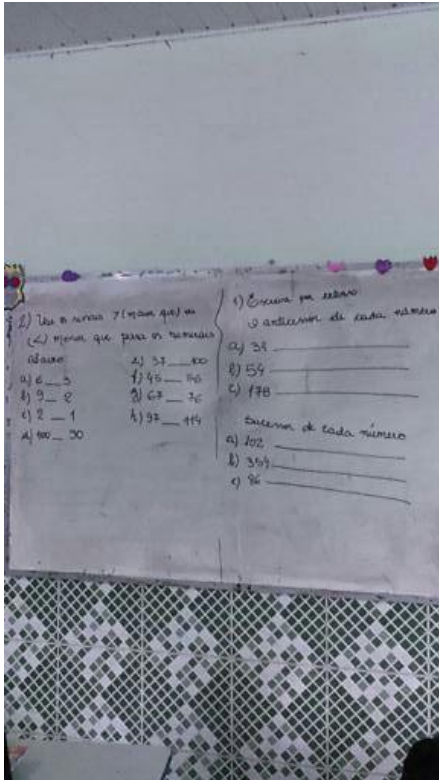 2) Use os sinais > (maior que) ou
(<) menor que para os numerais
abaixo
a) 6 __ 3
b) 9 __ 8
c) 2 __ 1
d) 100 __ 90
e) 37 __ 100
f) 45 __ 56
g) 67 __ 76
h) 97 __ 114
1) Escreva por extenso
o antecessor de cada número
a) 38
b) 59
c) 178
Sucessor de cada número
a) 202
b) 359
c) 86